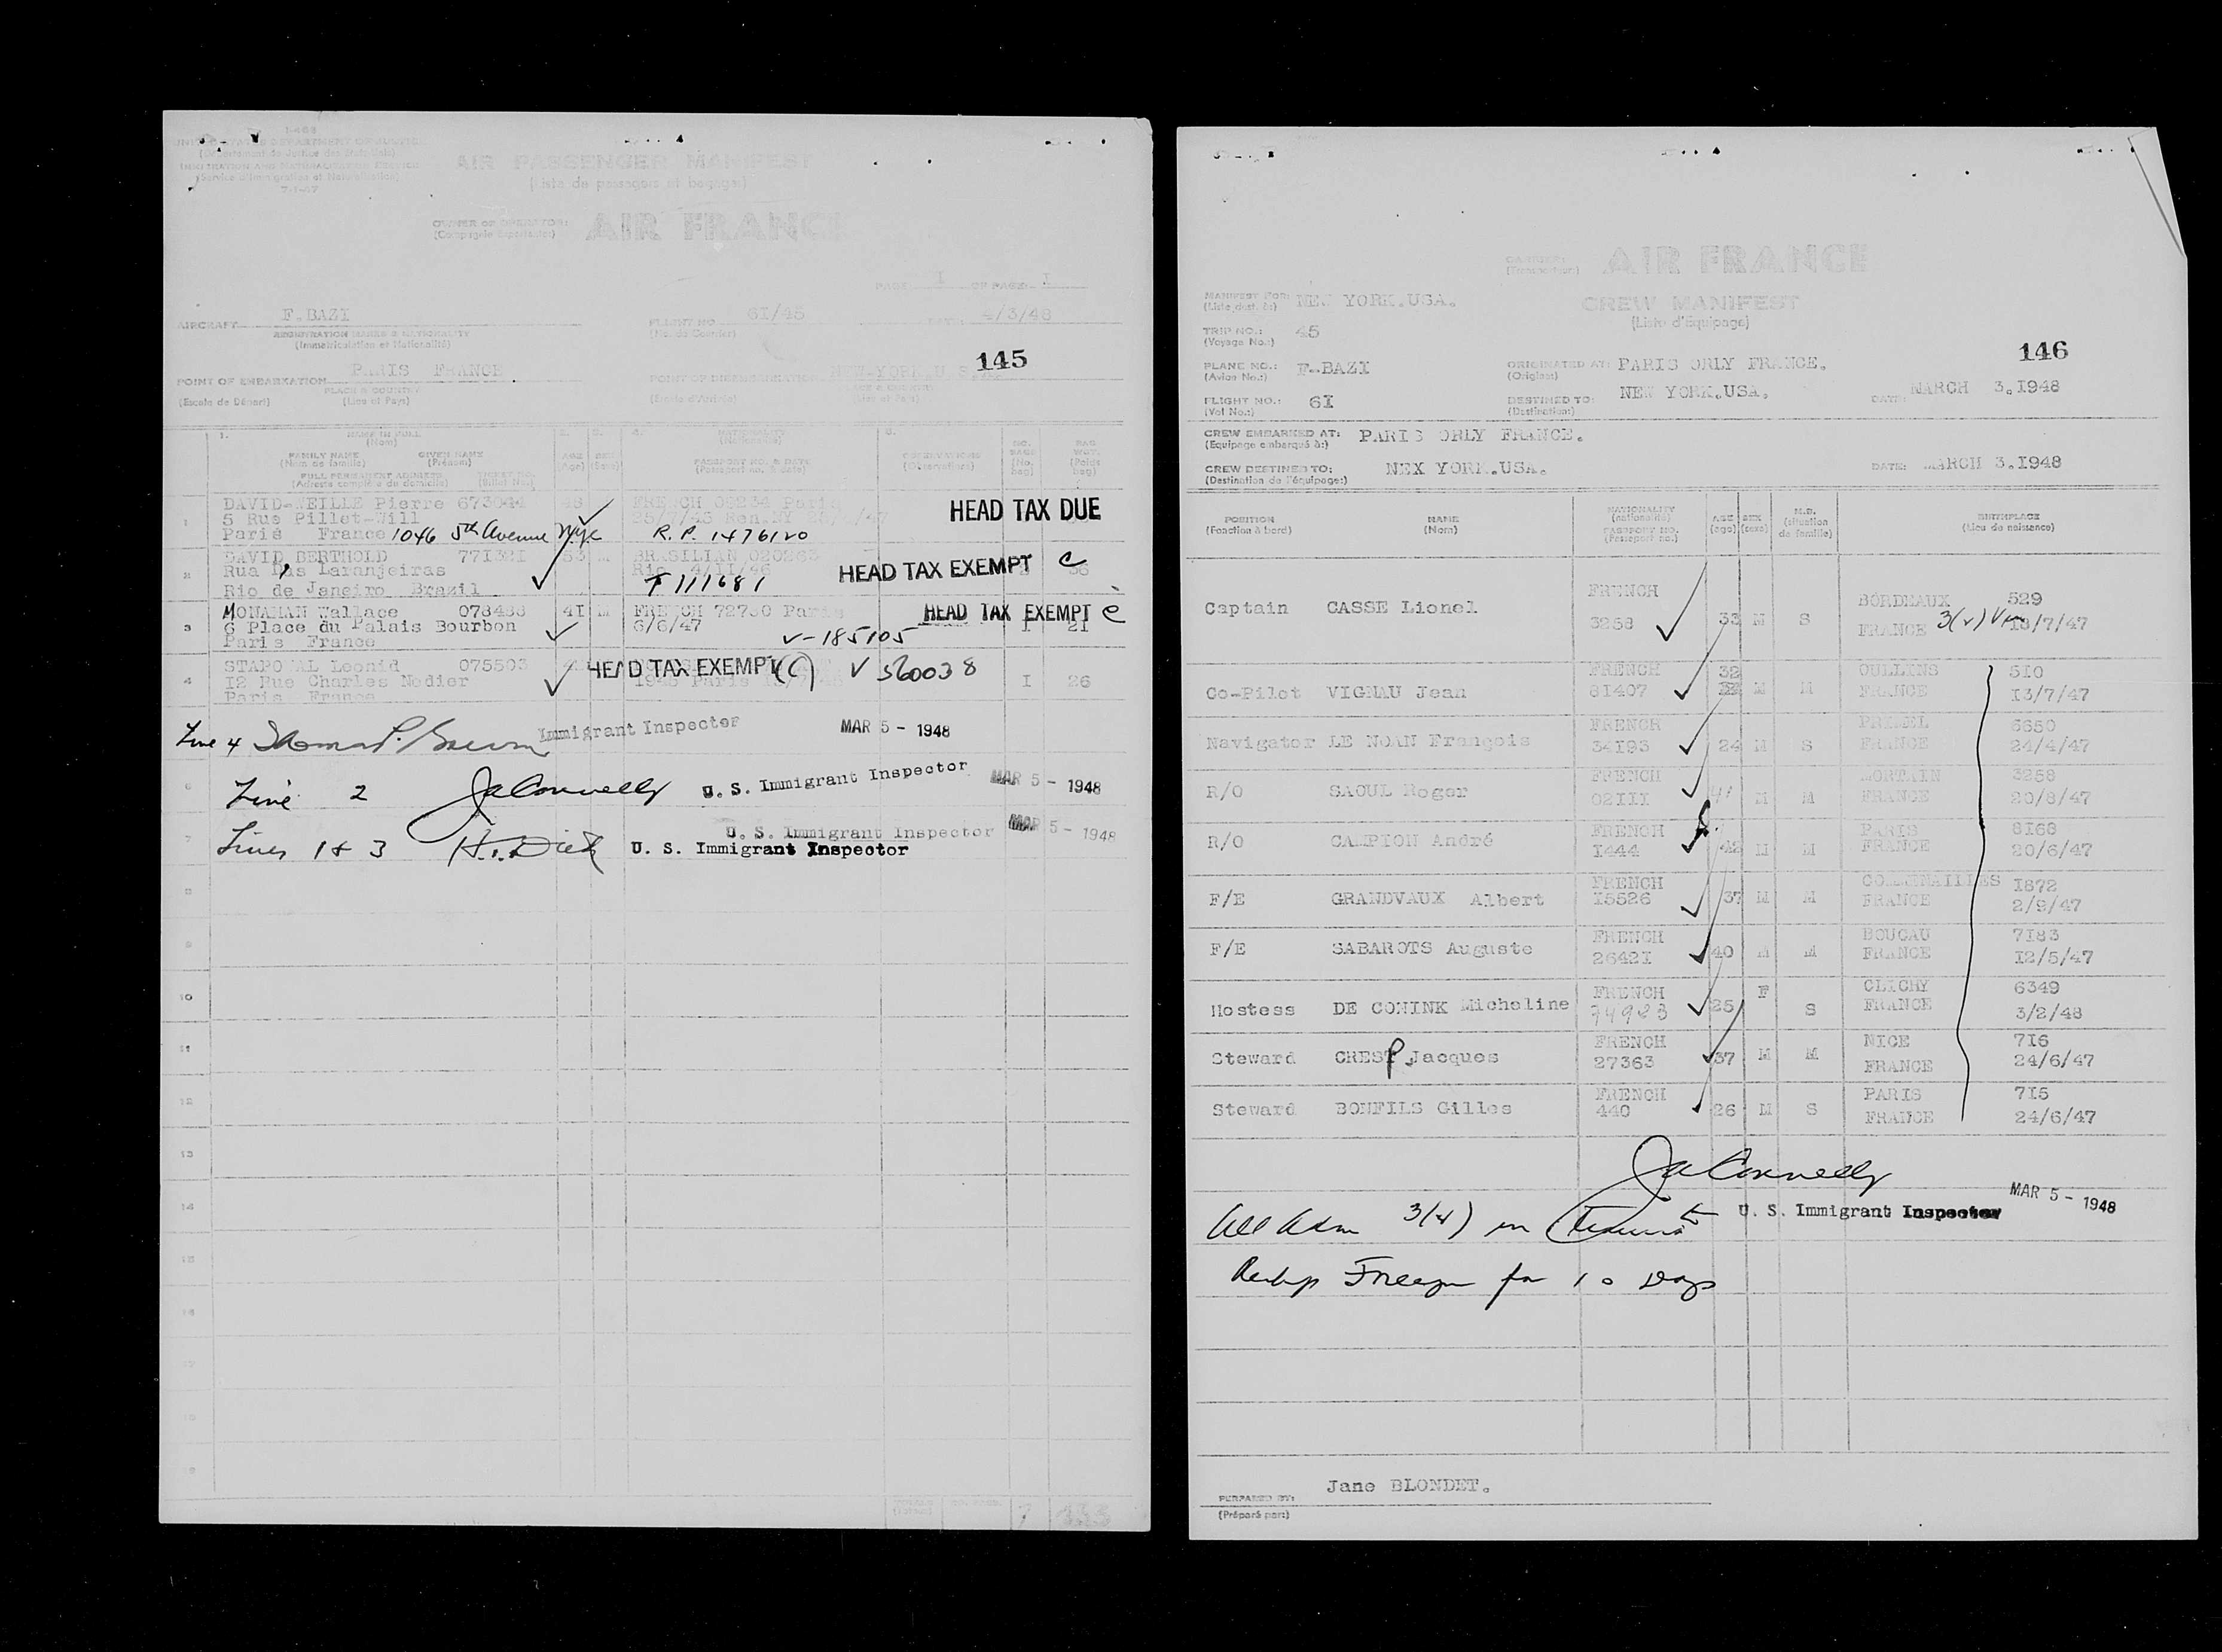 I-466
UNITED STATES DEPARTMENT OF JUSTICE
(Département de Justice des Etats-Unis)
IMMIGRATION AND NATURALIZATION SERVICE
(Service d'Immigration et Naturalisation)
7-1-47
AIR PASSENGER MANIFEST
(Liste de passagers et bagages)
OWNER OF OPERATOR:
(Compagnie Exportatice)
AIR FRANCE
PAGE I OF PAGE: I
AIRCRAFT F.BAZI
REGISTRATION MARKS & NATIONALITY
(Immatriculation et Nationalité)
FLIGHT NO. 6I/45
(No. de Courrier)
DATE: 4/3/48
145
POINT OF EMBARKATION PARIS FRANCE
PLACE & COUNTRY
(Escale de Départ) (Lieu et Pays)
POINT OF DISEMBARKATION NEW-YORK.U.S
(Escale d'Arrivée) (Lieu et Pays)
1. NAME IN FULL
(Nom)
FAMILY NAME GIVEN NAME
(Nom de famille) (Prénom)
FULL PERMANENT ADDRESS TICKET NO.
(Adresse complète du domicile) (Billet No.)
2. AGE (Age)
3. SEX (Sexe)
4. NATIONALITY
(Nationalité)
PASSPORT NO. & DATE
(Passeport no. & date)
OBSERVATIONS
(Observations)
NO. BAGS (No. bag)
BAG WGT. (Poids bag)
1 DAVID-WEILLE Pierre 673044 48 FRENCH 09234 Pari HEAD TAX DUE
5 Rue Pillet-Will
Paris France 1046 5th Avenue NYC R.P. 1476120
2 DAVID BERTHOLD 77I32I 53 M BRASILIAN 020263 HEAD TAX EXEMPT C
Rua Das Laranjeiras Rio 4/II/46 36
Rio de Janeiro Brazil T 111681
3 MONAHAN Wallace 078488 4I M FRENCH 72730 Paris HEAD TAX EXEMPT C
6 Place du Palais Bourbon 6/6/47 I 2I
Paris France V-185105
4 STAROSAL Leonid 075503 HEAD TAX EXEMPT (C) V 560038
I2 Rue Charles Nodier I 26
Paris France
Line 4 Thomas P. Brown Immigrant Inspector MAR 5 - 1948
6 Line 2 JaConnelly U. S. Immigrant Inspector MAR 5 - 1948
7 U. S. Immigrant Inspector MAR 5 - 1948
Lines 1 & 3 H. Dick U. S. Immigrant Inspector
8
9
10
11
12
13
14
15
16
17
7 133
CARRIER:
(Transporteur)
AIR FRANCE
MANIFEST FOR: NEW YORK.USA.
(Liste dest. à:)
CREW MANIFEST
(Liste d'Equipage)
TRIP NO.: 45
(Voyage No.:)
146
PLANE NO.: F-BAZI
(Avion No.:)
ORIGINATED AT: PARIS ORLY FRANCE.
(Origine)
FLIGHT NO.: 6I
(Vol No.:)
DESTINED TO: NEW YORK.USA.
(Destination:)
DATE: MARCH 3.I948
CREW EMBARKED AT: PARIS ORLY FRANCE.
(Equipage embarqué à:)
CREW DESTINED TO: NEX YORK.USA.
(Destination de l'équipage:)
DATE: MARCH 3.I948
POSITION
(Fonction à bord)
NAME
(Nom)
NATIONALITY
(nationalité)
PASSPORT NO.
(Passeport no.)
AGE (age)
SEX (sexe)
M.S. (situation de famille)
BIRTHPLACE
(Lieu de naissance)
Captain CASSE Lionel FRENCH 3258 33 M S BORDEAUX 529
FRANCE 3(v) Vm I8/7/47
Co-Pilot VIGNAU Jean FRENCH 8I407 32 M M OULLINS 5I0
FRANCE I3/7/47
Navigator LE NOAN François FRENCH 34I93 24 M S 6650
FRANCE 24/4/47
R/O SAOUL Roger FRENCH 02III 41 M M MORTAIN 3258
FRANCE 20/8/47
R/O CAMPION André FRENCH I444 42 M M PARIS 8I68
FRANCE 20/6/47
F/E GRANDVAUX Albert FRENCH I5526 37 M M COMMENAILLES I872
FRANCE 2/9/47
F/E SABAROTS Auguste FRENCH 2642I 40 M M BOUCAU 7I83
FRANCE I2/5/47
Hostess DE CONINK Micheline FRENCH 74923 25 F S CLICHY 6349
FRANCE 3/2/48
Steward CRESP Jacques FRENCH 27363 37 M M NICE 7I6
FRANCE 24/6/47
Steward BONFILS Gilles FRENCH 440 26 M S PARIS 7I5
FRANCE 24/6/47
JaConnelly
All Adm 3(v) in Transit U. S. Immigrant Inspector MAR 5 - 1948
for 10 Days
PERPARED BY: Jane BLONDET.
(Préparé par:)